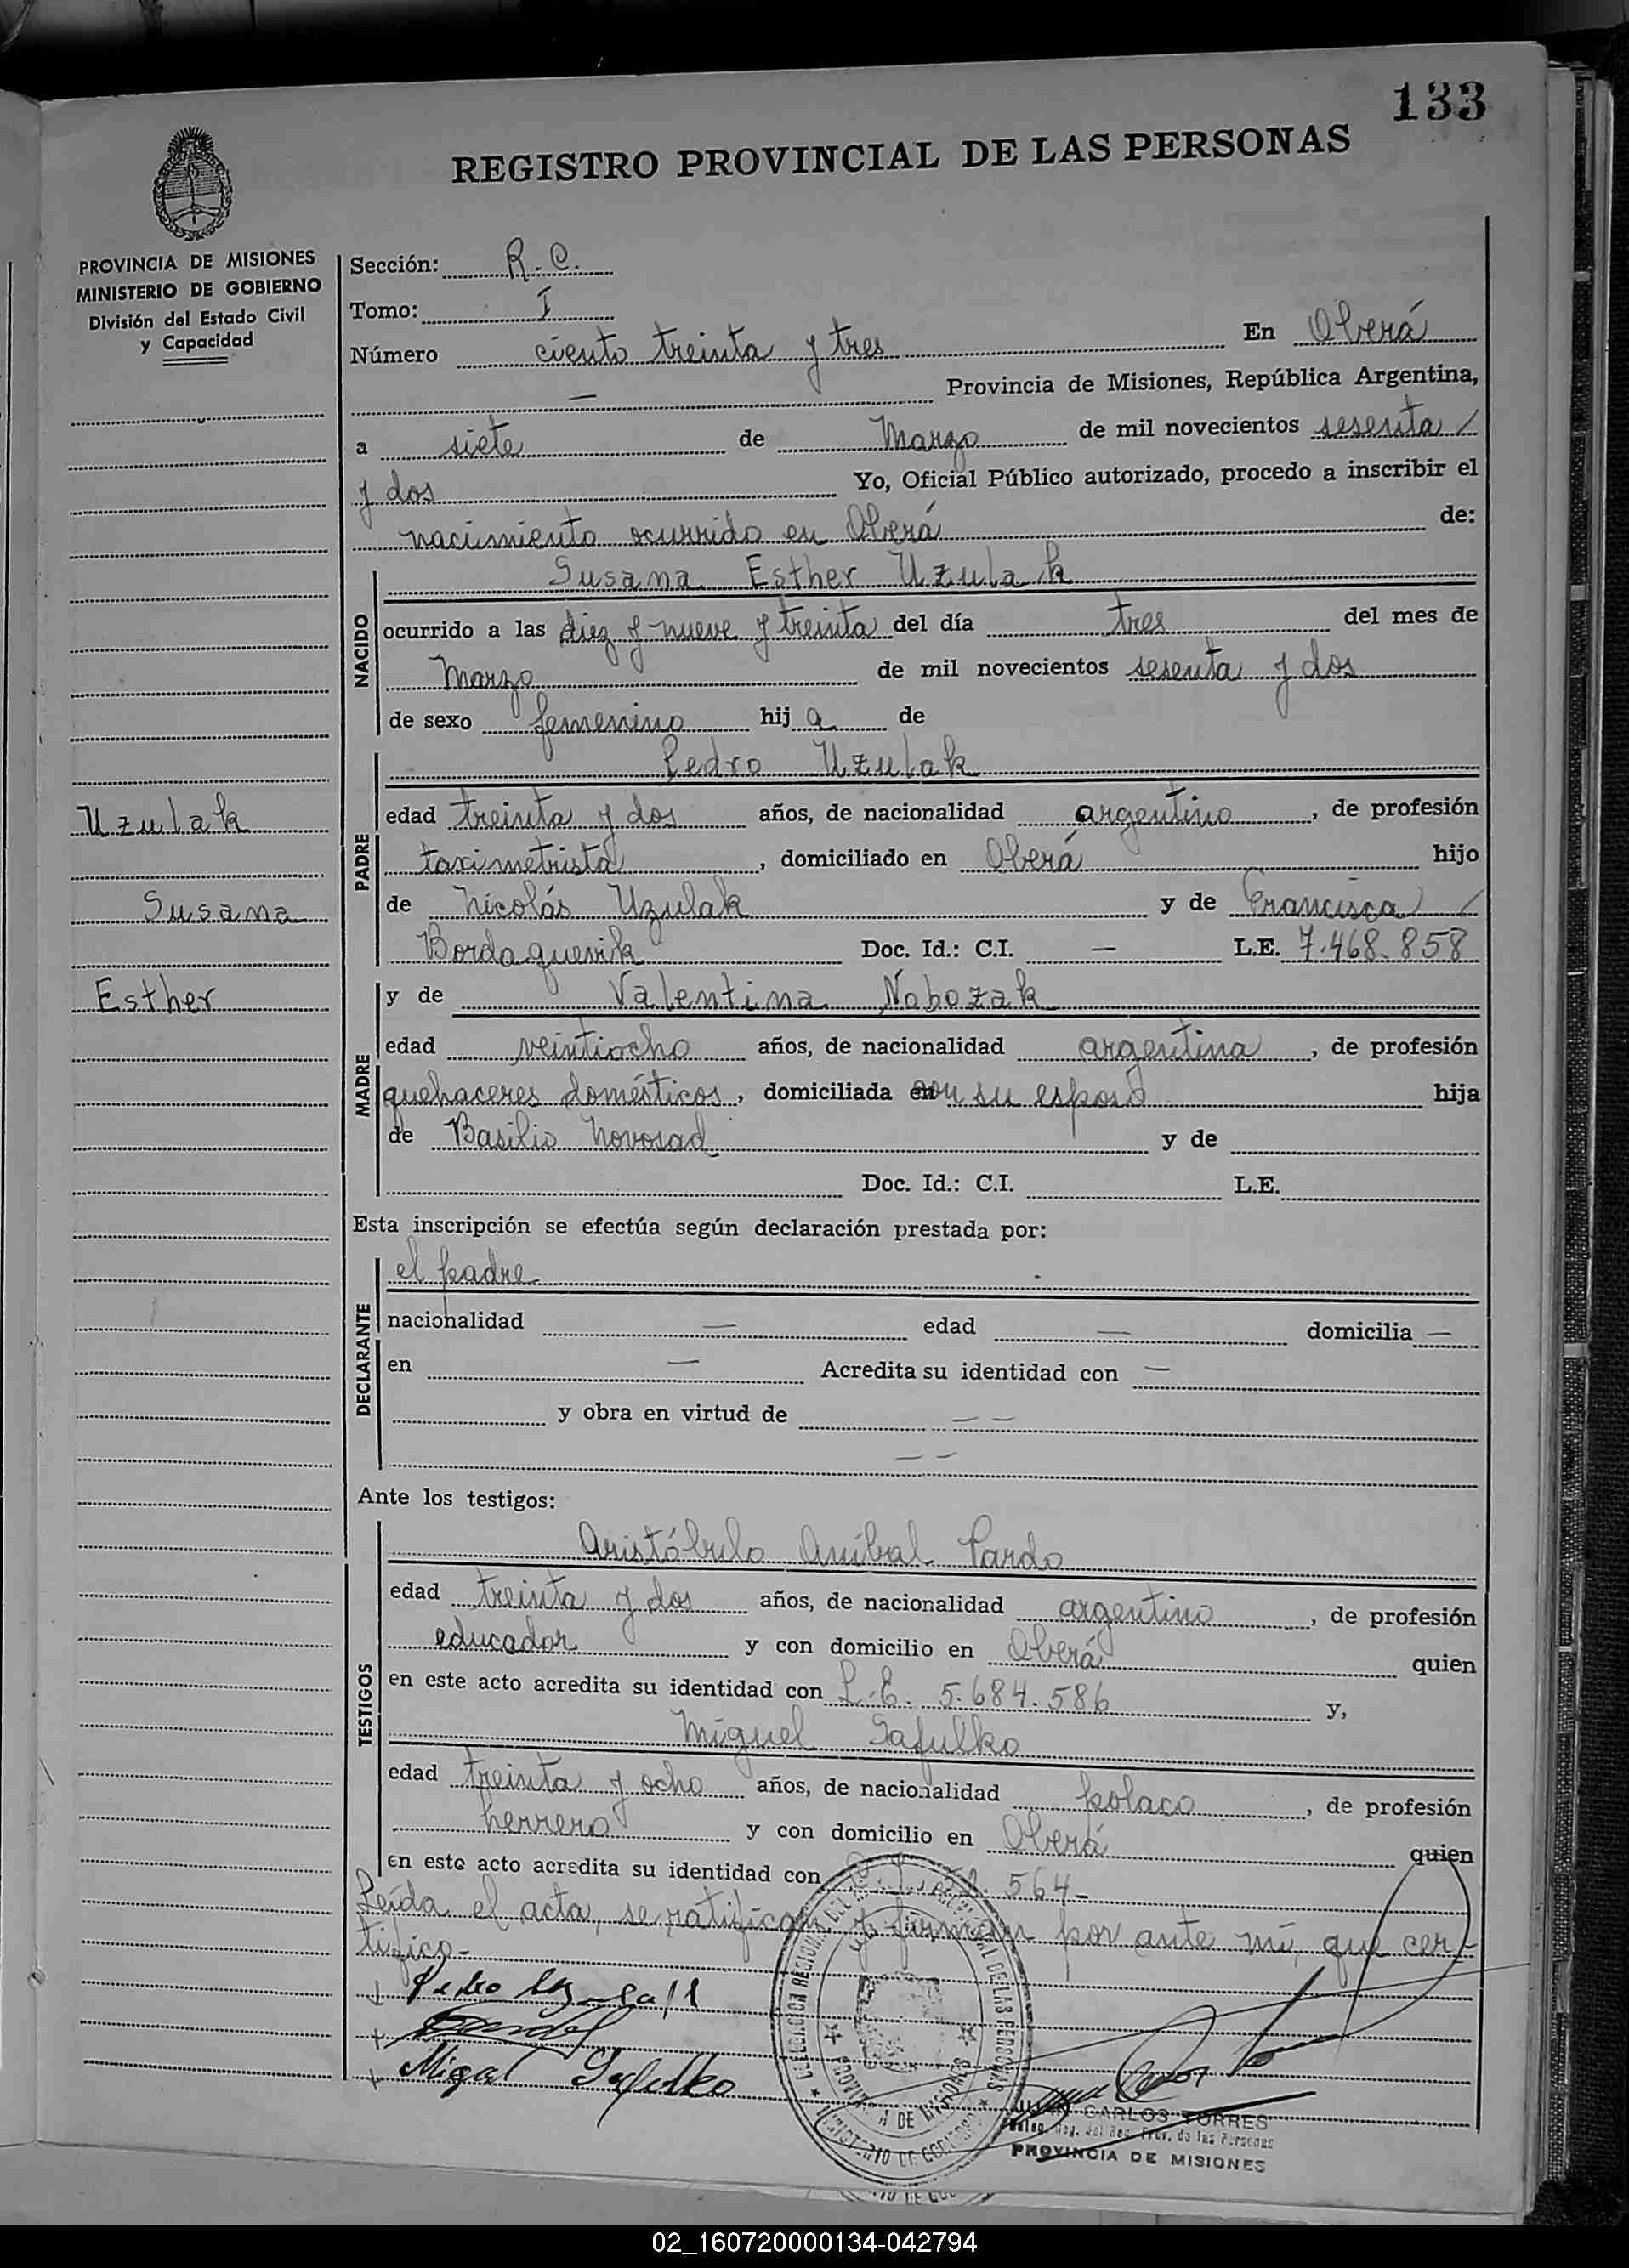 133
REGISTRO PROVINCIAL DE LAS PERSONAS
PROVINCIA DE MISIONES
MINISTERIO DE GOBIERNO
División del Estado Civil
y Capacidad
Sección: R. C.
Tomo: I
Número ciento treinta y tres En Oberá
— Provincia de Misiones, República Argentina,
a siete de Marzo de mil novecientos sesenta /
y dos Yo, Oficial Público autorizado, procedo a inscribir el
nacimiento ocurrido en Oberá de:
Susana Esther Uzulak
NACIDO
ocurrido a las diez y nueve y treinta del día tres del mes de
Marzo de mil novecientos sesenta y dos
de sexo femenino hij a de
Pedro Uzulak
Uzulak
Susana
Esther
PADRE
edad treinta y dos años, de nacionalidad argentino, de profesión
taximetrista, domiciliado en Oberá hijo
de Nicolás Uzulak y de Francisca /
Bordaquevik Doc. Id.: C.I. — L.E. 7.468.858
y de Valentina Nobozak
MADRE
edad veintiocho años, de nacionalidad argentina, de profesión
quehaceres domésticos, domiciliada con su esposo hija
de Basilio Novosad y de
Doc. Id.: C.I. L.E.
Esta inscripción se efectúa según declaración prestada por:
el padre
DECLARANTE
nacionalidad — edad — domicilia —
en — Acredita su identidad con —
y obra en virtud de — —
— —
Ante los testigos:
Aristóbulo Aníbal Pardo
TESTIGOS
edad treinta y dos años, de nacionalidad argentino, de profesión
educador y con domicilio en Oberá quien
en este acto acredita su identidad con L.E. 5.684.586 y,
Miguel Safulko
edad treinta y ocho años, de nacionalidad polaco, de profesión
herrero y con domicilio en Oberá quien
en este acto acredita su identidad con 564-
Leída el acta, se ratifican y firman por ante mí, que cer-
tifico-
Pedro Uzulak
Miguel Safulko
PROVINCIA DE MISIONES
MINISTERIO DE GOBIERNO
JUAN CARLOS TORRES
del Reg. Prov. de las Personas
PROVINCIA DE MISIONES
02_160720000134-042794